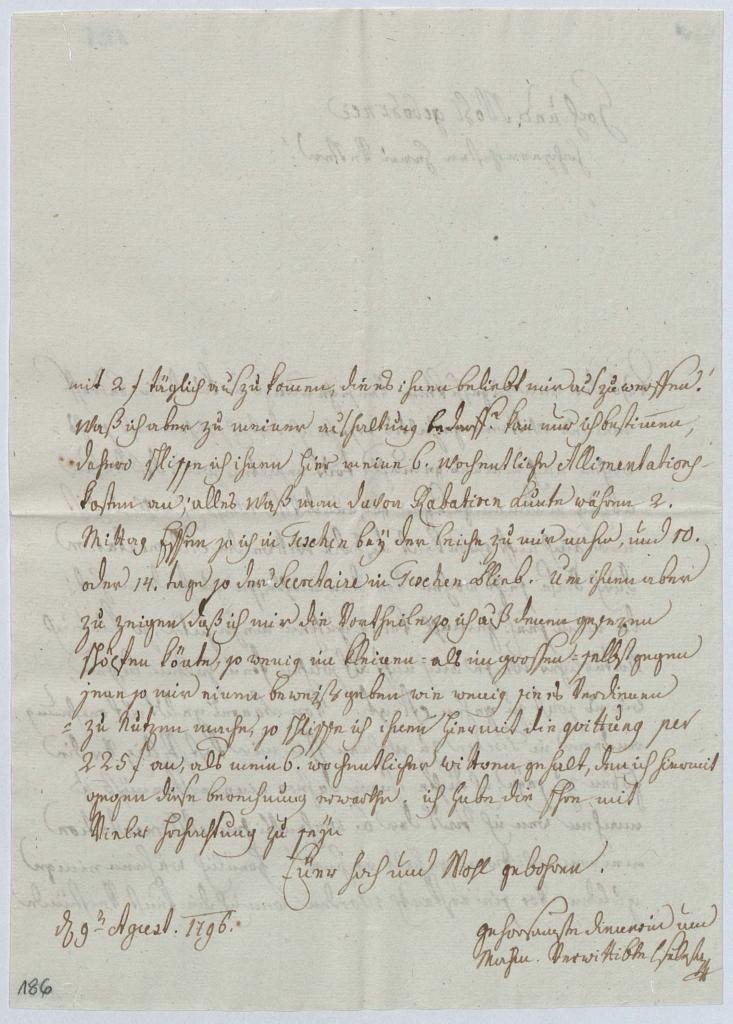 mit 2 f täglich auszukommen, die es ihnen beliebt mir auszuwerffen!
Waß ich aber zu meiner aushaltung bedarff? kan nur ich bestimen,
dahero schlisse ich ihnen hier meine 6. wochentliche Allimentations-
kosten an, alles waß man davon Rabatiren kunte währen 2.
Mittag Essen so ich in Teschen bey der leiche zu mir nahm, und 10.
oder 14. tage so der Secretaire in Teschen blieb. Um ihnen aber
zu zeigen, daß ich mir die Vortheile so ich auß denen gesezen
schöpfen könte, so wenig im kleinen = als im grossen = selbst gegen
jene so mir einen beweiß geben wie wenig sie es Verdienen
= zu Nutzen mache, so schlisse ich ihnen hiermit die quittung per
225 f an, als mein 6. wochentlicher wittwen gehalt, den ich hiermit
gegen diese berechnung erwarthe. ich habe die Ehre mit
Vieler hochachtung zu seyn
Euer hoch und Wohl gebohren.
d 9t Agust. 1796.
gehorsamste dienerin und
Verwittibte
186